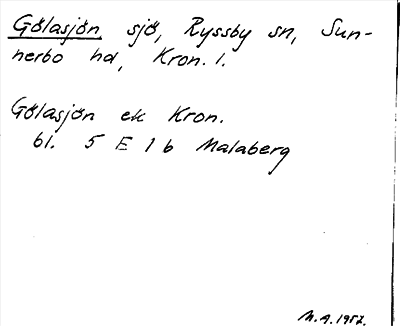 Gölasjön, sjö, Ryssby sn, Sun-
nerbo hd, Kron. l.
Gölasjön ek Kron.
bl. 5 E 1 b Malaberg
M.A. 1957.